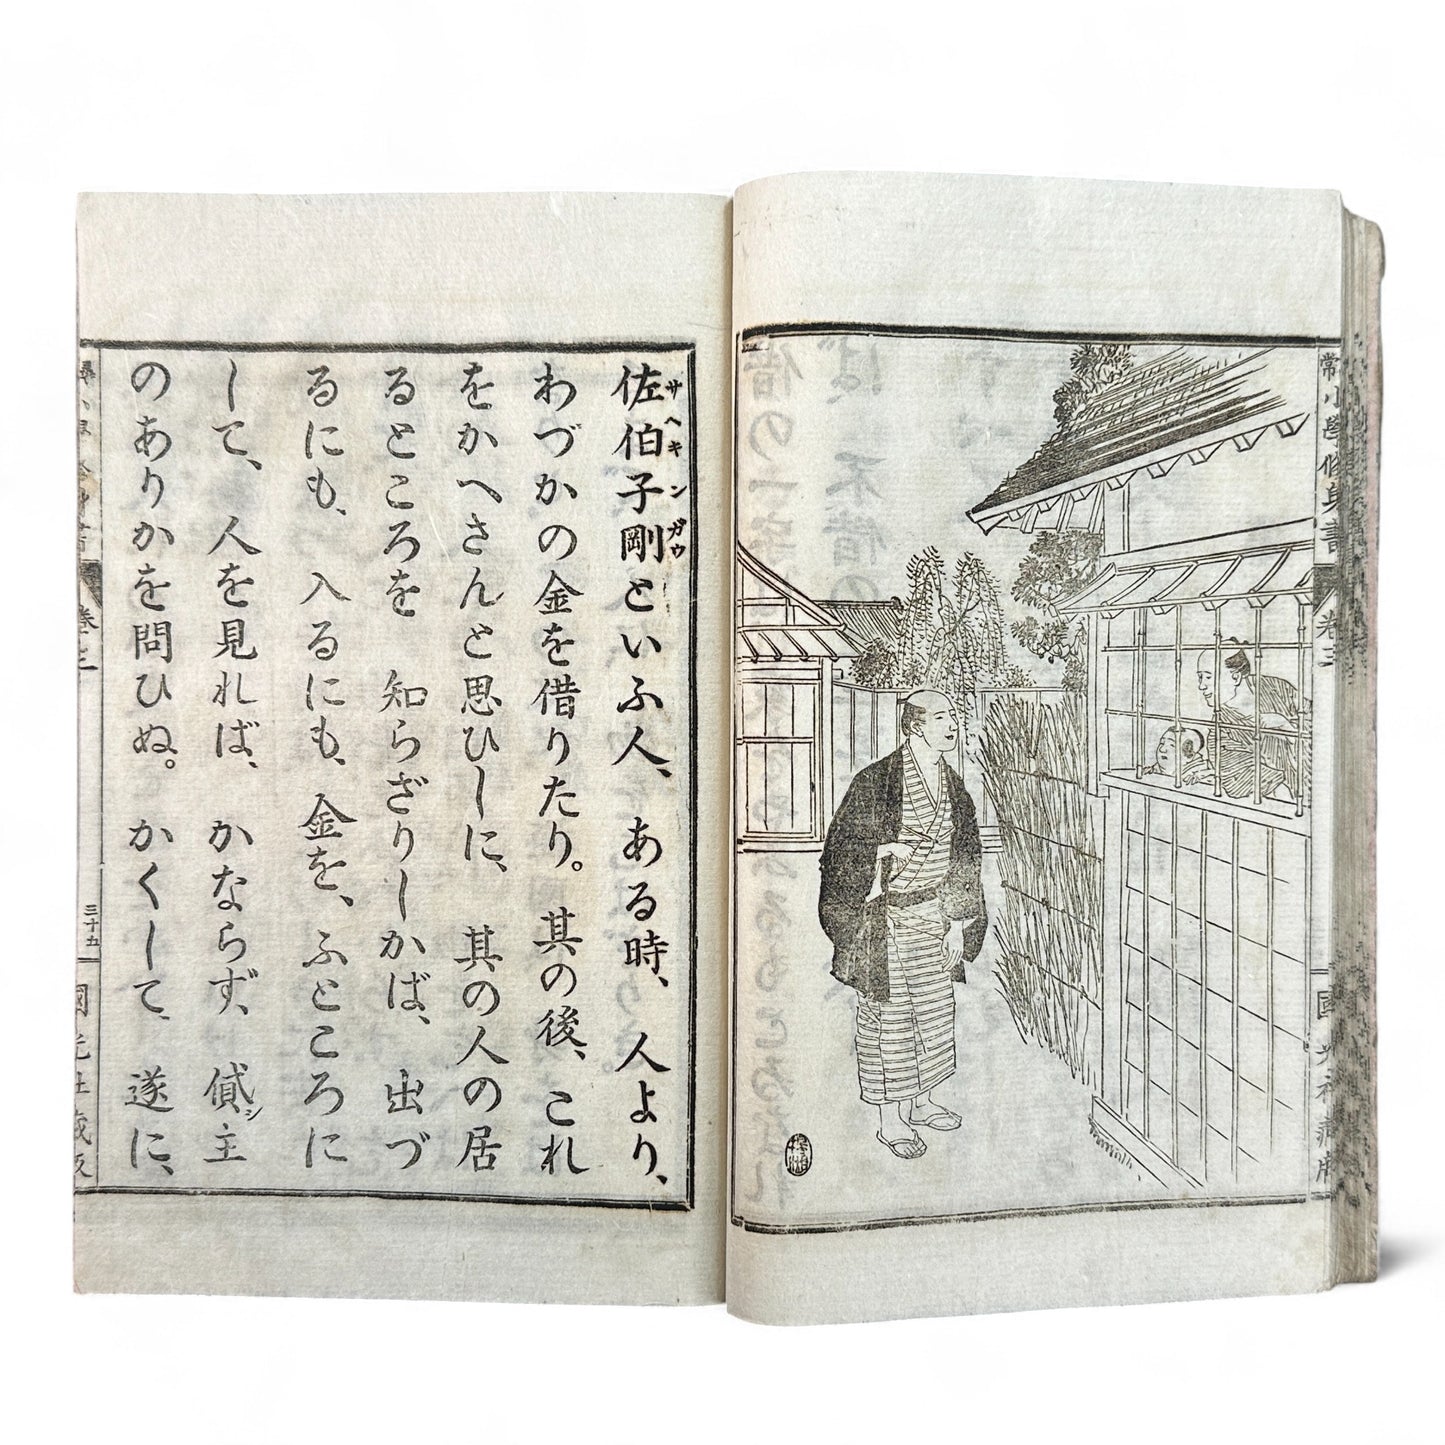 常小學修身書
卷三
國光社藏版
佐伯子剛といふ人、ある時、人より、
サヘキ ンガウ
わづかの金を借りたり。其の後、これ
をかへさんと思ひしに、其の人の居
るところを 知らざりしかば、出づ
るにも、入るにも、金を、ふところに
して、人を見れば、かならず、償主
シ
のありかを問ひぬ。かくして、遂に、
卷三
三十五
國光社藏版